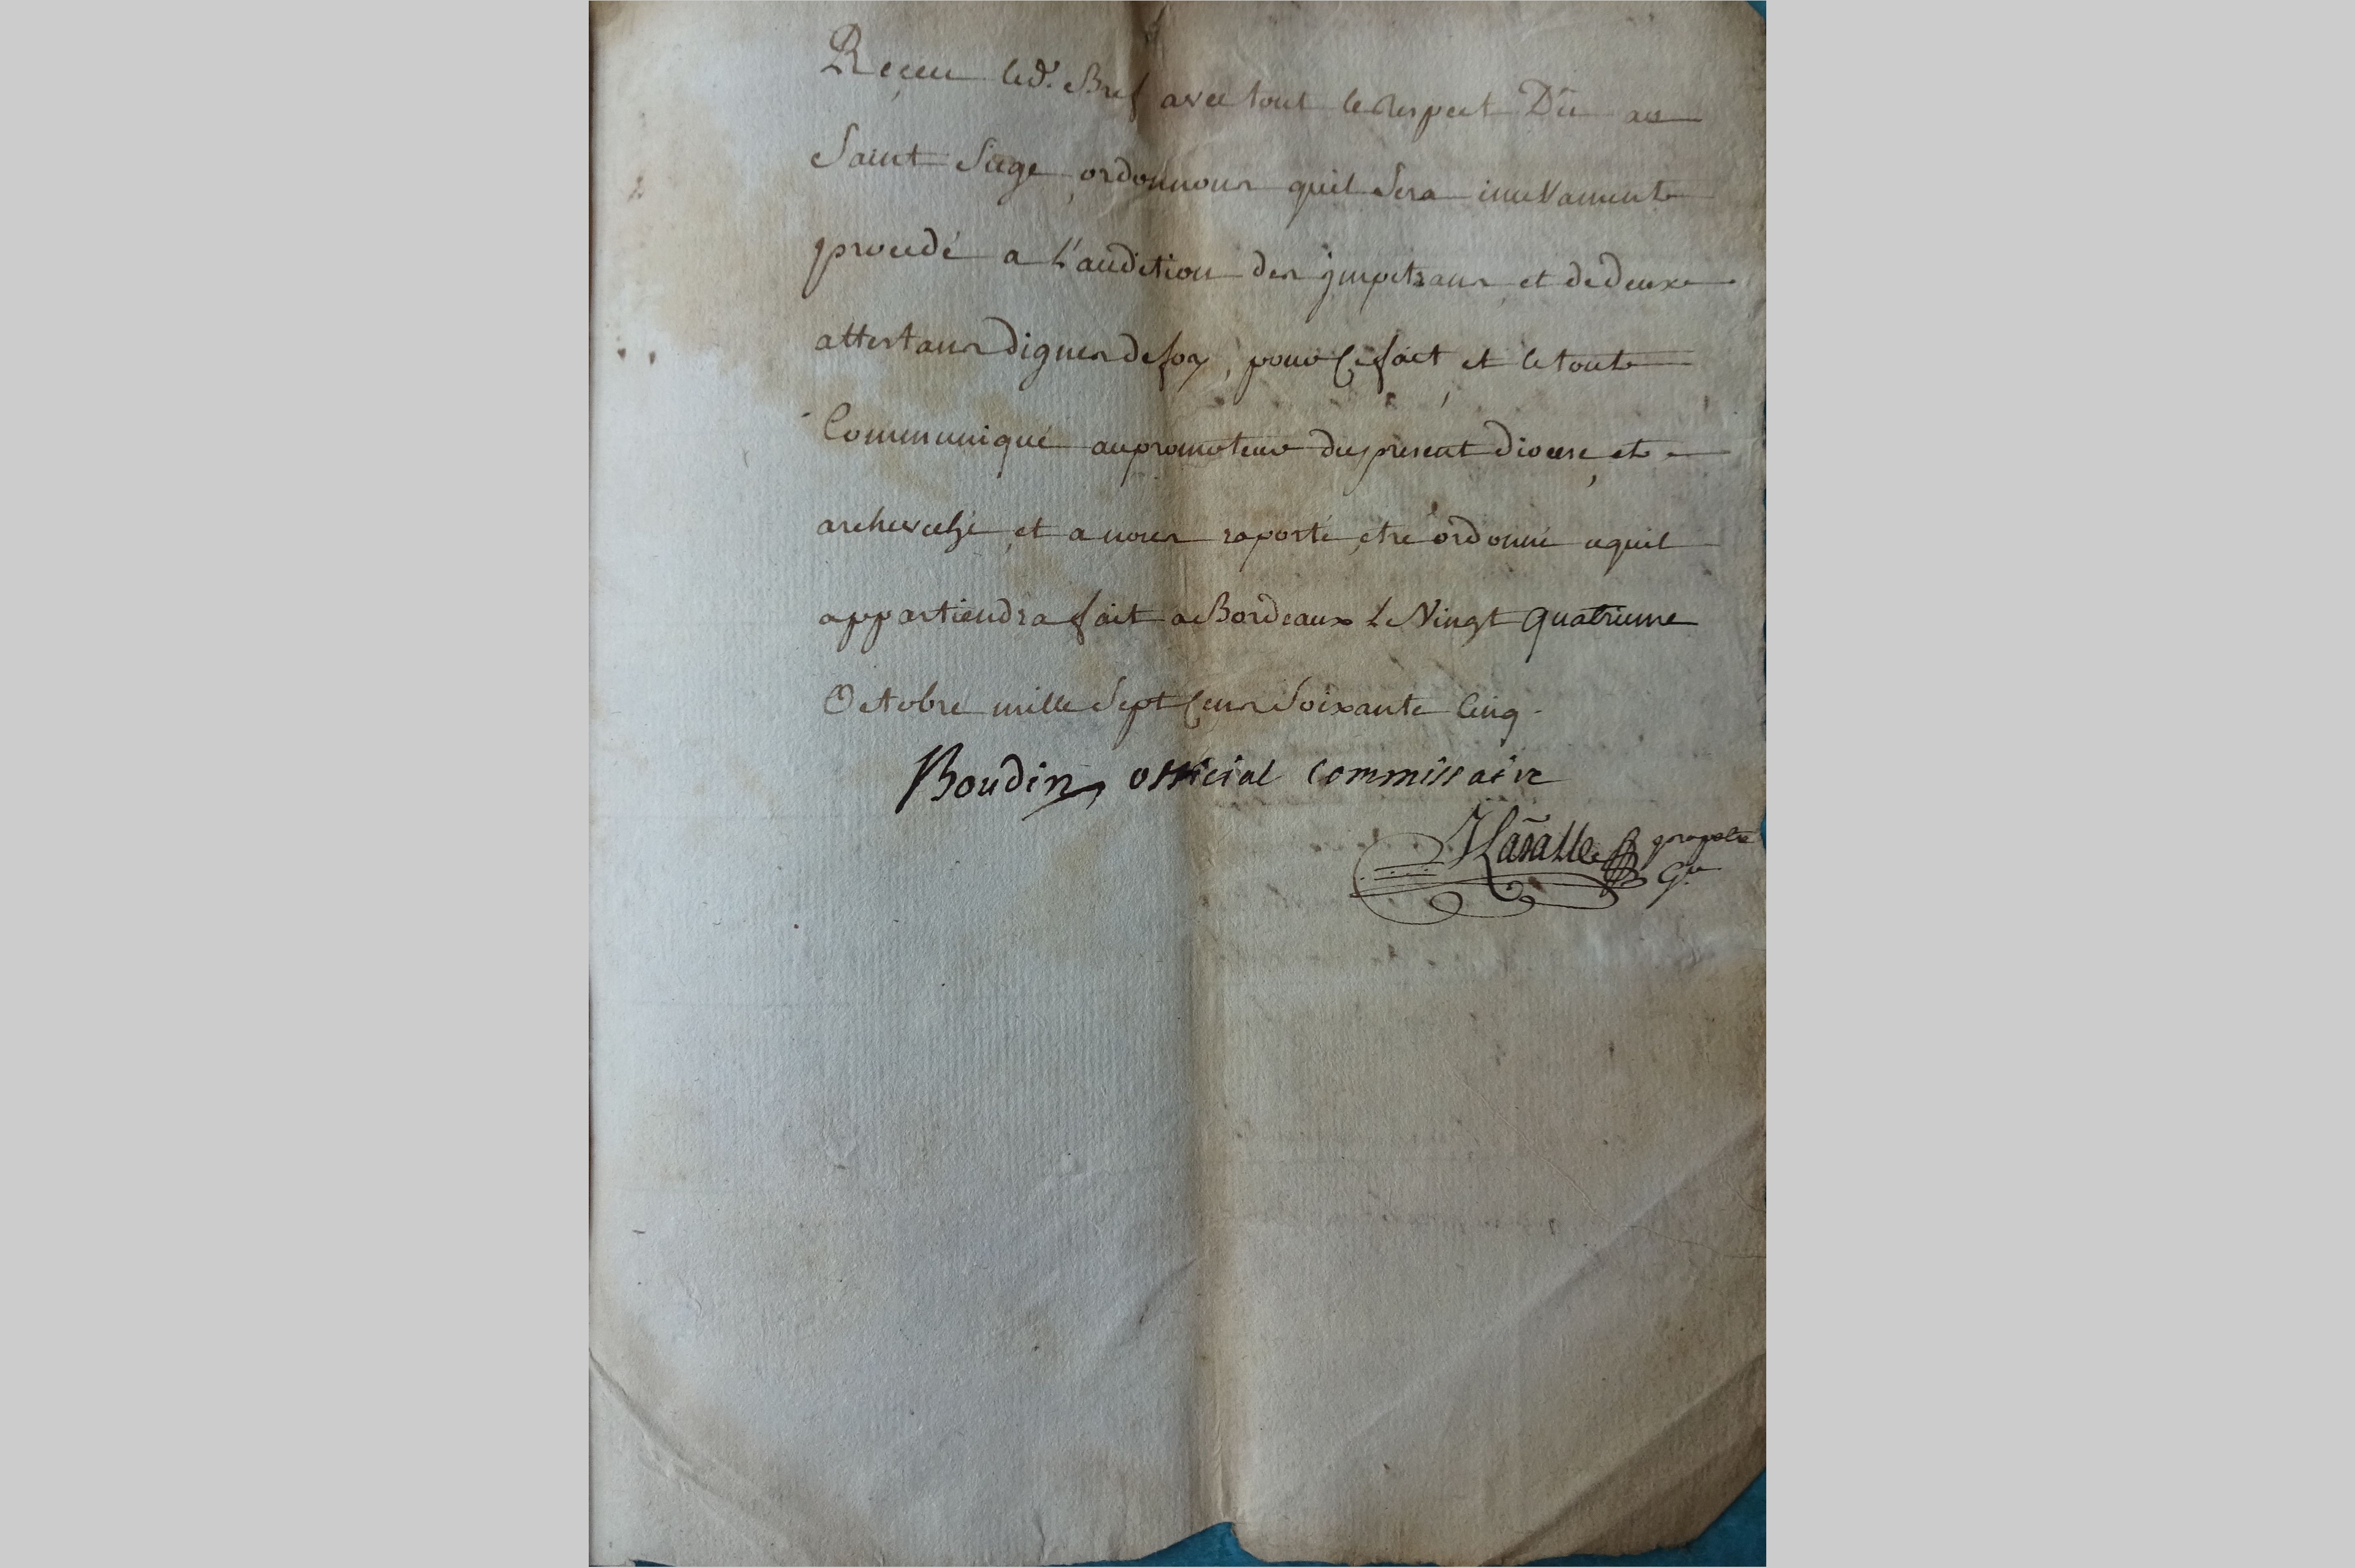 Reçeu led. Bref avec tout le Respect Dû au
Saint Siege, ordonnons quil sera
procedé a L'audition des jmpetrans et de deux
attestans dignes de foy, pour Ce fait et le tout
Communiqué au promoteur du present diocese, et
archeveché, et a nous raporté, etre ordonné cequil
appartiendra fait a Bordeaux Le Vingt Quatrieme
Octobre mille Sept Cens Soixante Cinq.
Boudin, official Commissaire